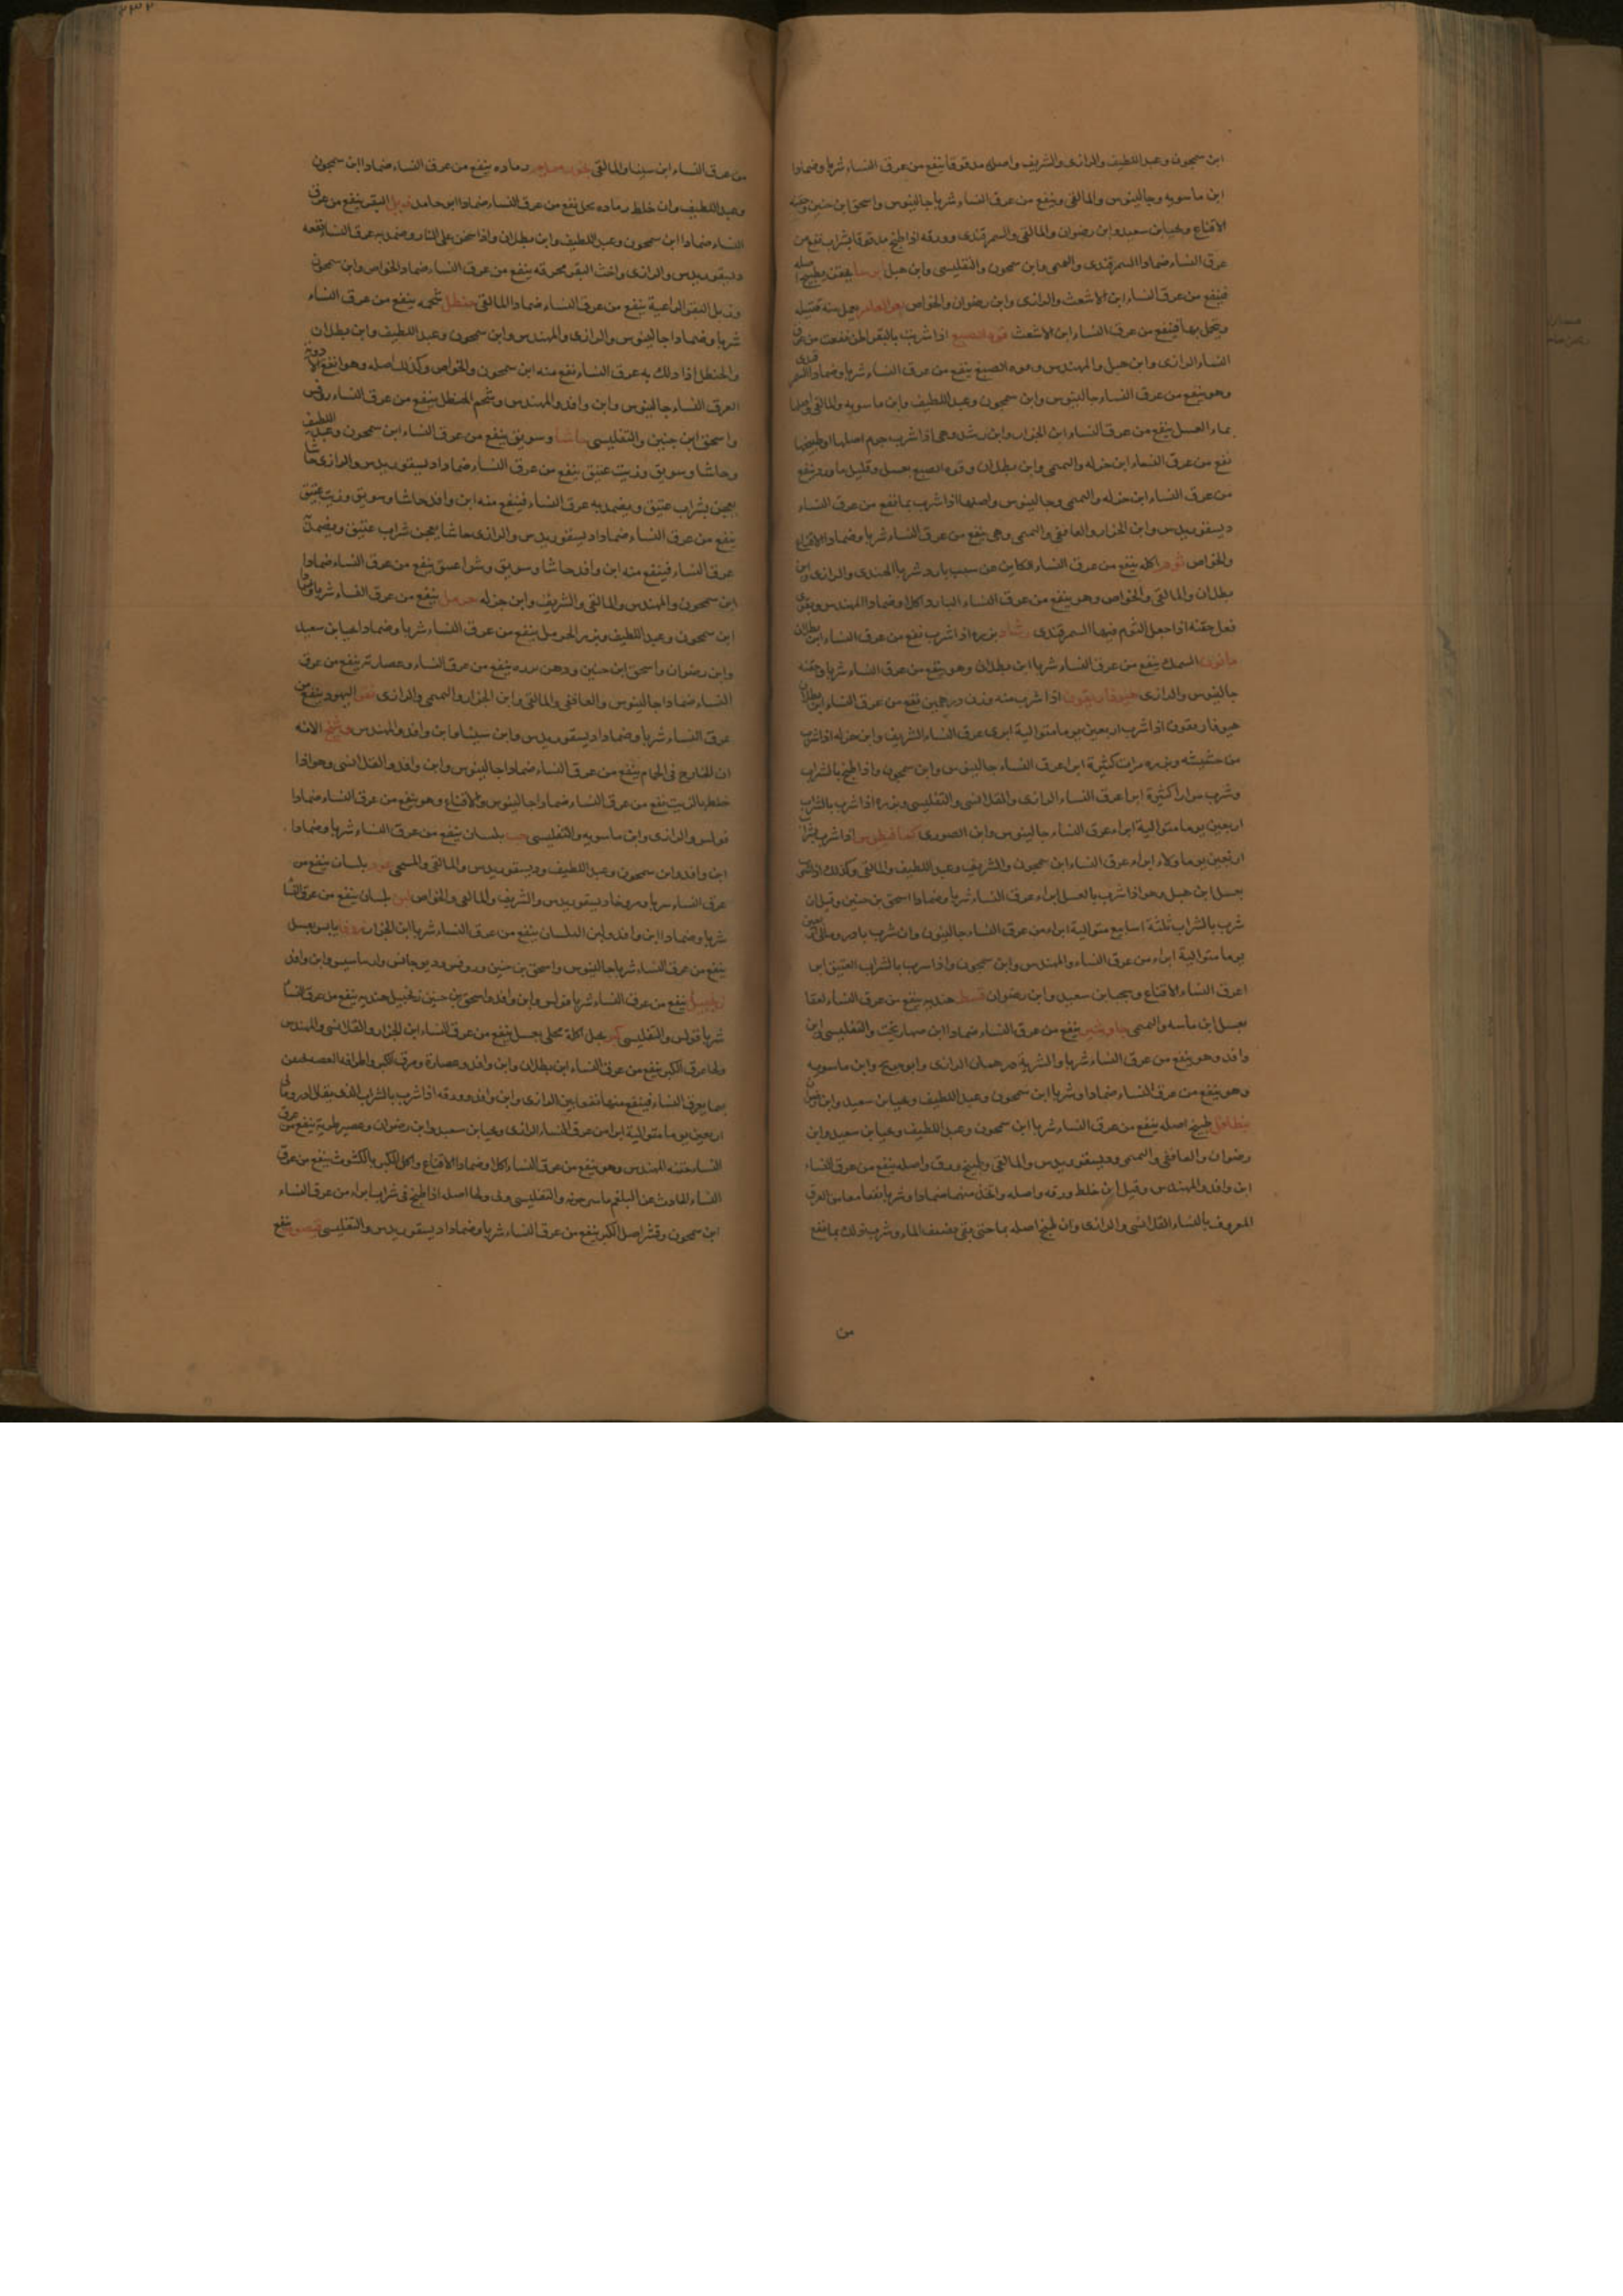 ابن سمجون وعبد اللطيف والرازى والشريف واصله مدقوقا ينفع من عرق النساء شربا وضمادا
ابن ماسويه وجالينوس والمالقى وينفع من عرق النساء شربا جالينوس واسحق ابن حنين وحقنه
الاقناع ويحيا بن سعيد وابن رضوان والمالقى والسمرقندى وورقه اذا طبخ مدقوقا بشراب نفع من
عرق النساء ضمادا السمرقندى وابن سمجون والتفليسى وابن هبل
فينفع من عرق النساء ابن الاشعث والرازى وابن رضوان والخواص يعمل منه فتيله
ويتحمل بها فينفع من عرق النساء ابن الاشعث فوه الصبغ اذا شربت نفعت من عرق
النساء الرازى وابن هبل والمهندس وفوه الصبغ ينفع من عرق النساء شربا وضمادا
وهو ينفع من عرق النساء جالينوس وابن سمجون وعبد اللطيف وابن ماسويه والمالقى واصلها
بماء العسل ينفع من عرق النساء ابن الجزار وابن رشد وهى اذا شرب جرم اصلها او طبيخها
نفع من عرق النساء ابن جزله والتميمى وابن بطلان وفوه الصبغ بعسل وقليل ماورد ينفع
من عرق النساء ابن جزله والتميمى وجالينوس واصلها اذا شرب بما نفع من عرق النساء
ديسقوريدس وابن الجزار والغافقى والتميمى وهى ينفع من عرق النساء شربا وضمادا الاقناع
والخواص ثوم اكله ينفع من عرق النساء الكاين عن سبب بارد شربا الهندى والرازى وابن
بطلان والمالقى والخواص وهو ينفع من عرق النساء البارد اكلا وضمادا المهندس
فعل حقنه اذا جعل الثوم فيها السمرقندى رشاد بزره اذا شرب نفع من عرق النساء ابن بطلان
السمك ينفع من عرق النساء شربا ابن بطلان وهو ينفع من عرق النساء شربا وحقنه
جالينوس والرازى هيوفاريقون اذا شرب منه وزن درهمين نفع من عرق النساء ابن بطلان
هيوفاريقون اذا شرب اربعين يوما متوالية ابرى عرق النساء الشريف وابن جزله اذا شرب
من حشيشه وبزره مرات كثيرة ابرا عرق النساء جالينوس وابن سمجون واذا طبخ بالشراب
وشرب مرارا كثيرة ابرا عرق النساء الرازى والقلانسى والتفليسى وبزره اذا شرب بالشراب
اربعين يوما متوالية ابراء عرق النساء جالينوس وابن الصورى كمافيطوس اذا شرب
اربعين يوما ولاء ابراء عرق النساء ابن سمجون والشريف وعبد اللطيف والمالقى وكذلك
بعسل ابن هبل وهو اذا شرب بالعسل ابراء عرق النساء شربا وضمادا اسحق بن حنين وقيل ان
شرب بالشراب ثلثة اسابيع متوالية ابراء من عرق النساء جالينوس وان شرب بادرومالى اربعين
يوما متوالية ابراء من عرق النساء والمهندس وابن سمجون واذا شرب بالشراب العتيق ابرا
عرق النساء الاقناع ويحيا بن سعيد وابن رضوان قسط هنديه ينفع من عرق النساء لعقا
بعسل ابن ماسه والتميمى جاوشير ينفع من عرق النساء ضمادا ابن صهاربخت والتفليسى وابن
وافد وهو ينفع من عرق النساء شربا والشربة درهمان الرازى وابو جريج وابن ماسويه
وهو ينفع من عرق النساء ضمادا وشربا ابن سمجون وعبد اللطيف ويحيا بن سعيد وابن
طبيخ اصله ينفع من عرق النساء شربا ابن سمجون وعبد اللطيف ويحيا بن سعيد وابن
رضوان والغافقى والتميمى وديسقوريدس والمالقى وطبيخ ورق واصله ينفع من عرق النساء
ابن وافد والمهندس وقيل ان خلط ورقه واصله واتخذ منهما ضمادا وشربا نفعا العرق
المعروف بالنساء القلانسى والرازى وان طبخ اصله بما حتى يبقى نصف الماء وشرب ذلك بما نفع
من
٢٣٢
من عرق النساء ابن سينا والمالقى رماده ينفع من عرق النساء ضمادا ابن سمجون
وعبد اللطيف وان خلط رماده بخل نفع من عرق النساء ضمادا ابن حامد زبل البقر ينفع من عرق
النساء ضمادا ابن سمجون وعبد اللطيف وابن بطلان واذا سخن على النار وضمد به عرق النسا نفعه
ديسقوريدس والرازى واخثا البقر محرقه ينفع من عرق النساء ضمادا الخواص وابن سمجون
وزبل البقر الراعية ينفع من عرق النساء ضمادا المالقى حنظل شحمه ينفع من عرق النساء
شربا وضمادا جالينوس والرازى والمهندس وابن سمجون وعبد اللطيف وابن بطلان
والحنظل اذا دلك به عرق النساء نفع منه ابن سمجون والخواص وكذلك اصله وهو انفع الادوية
لعرق النساء جالينوس وابن وافد والمهندس وشحم الحنظل ينفع من عرق النساء روفس
واسحق ابن حنين والتفليسى حاشا وسويق ينفع من عرق النساء ابن سمجون وعبد اللطيف
وحاشا وسويق وزيت عتيق ينفع من عرق النساء ضمادا ديسقوريدس والرازى حاشا
يعجن بشراب عتيق ويضمد به عرق النساء فينفع منه ابن وافد حاشا وسويق وزيت عتيق
ينفع من عرق النساء ضمادا ديسقوريدس والرازى حاشا يعجن شراب عتيق ويضمد
عرق النساء فينفع منه ابن وافد حاشا وسويق وشراب عتيق ينفع من عرق النساء ضمادا
ابن سمجون والمهندس والمالقى والشريف وابن جزله حرمل ينفع من عرق النساء شربا
ابن سمجون وعبد اللطيف وبزر الحرمل ينفع من عرق النساء شربا وضمادا يحيا بن سعيد
وابن رضوان واسحق ابن حنين ودهن ورده ينفع من عرق النساء وعصارته ينفع من عرق
النساء ضمادا جالينوس والغافقى والمالقى وابن الجزار والتميمى والرازى قفر اليهود ينفع من
عرق النساء شربا وضمادا ديسقوريدس وابن سينا وابن وافد والمهندس وسخ
الخارج فى الحمام ينفع من عرق النساء ضمادا جالينوس وابن وافد والقلانسى وهو اذا
خلط بالزيت نفع من عرق النساء ضمادا جالينوس والاقناع وهو ينفع من عرق النساء ضمادا
فولس والرازى وابن ماسويه والتفليسى حب بلسان ينفع من عرق النساء شربا وضمادا
ابن وافد وابن سمجون وعبد اللطيف وديسقوريدس والمالقى والمسيحى عود بلسان ينفع من
عرق النساء شربا ومروخا ديسقوريدس والشريف والمالقى والخواص لبن بلسان ينفع من عرق النسا
شربا وضمادا ابن وافد ولبن البلسان ينفع من عرق النساء شربا ابن الجزار زوفا يابس بعسل
ينفع من عرق النساء شربا جالينوس واسحق بن حنين وروفس وابن وافد
زنجبيل ينفع من عرق النساء شربا فولس وابن وافد واسحق بن حنين زنجبيل هنديه ينفع من عرق النسا
شربا فولس والتفليسى كبر بخل اكله مخلل بعسل ينفع من عرق النساء ابن الجزار والقلانسى والمهندس
ولحا عرق الكبر ينفع من عرق النساء ابن بطلان وابن وافد وعصارة ورق الكبر واطرافه الغضه
بها عرق النساء فينفع منها نفعا بين الرازى وابن وافد وورقه اذا شرب بالشراب الذى يقال ادرومالى
اربعين يوما متوالية ابرا من عرق النساء الرازى ويحيا بن سعيد وابن رضوان وعصير طريه ينفع من عرق
النساء حقنه المهندس وهو ينفع من عرق النساء اكلا وضمادا الاقناع واكل الكبر بالكشوث ينفع من عرق
النساء الحادث عن البلغم ماسرجويه والتفليسى ولحا اصله اذا طبخ فى شراب ابراء من عرق النساء
ابن سمجون وقشر اصل الكبر ينفع من عرق النساء شربا وضمادا ديسقوريدس والتفليسى قيصوم ينفع